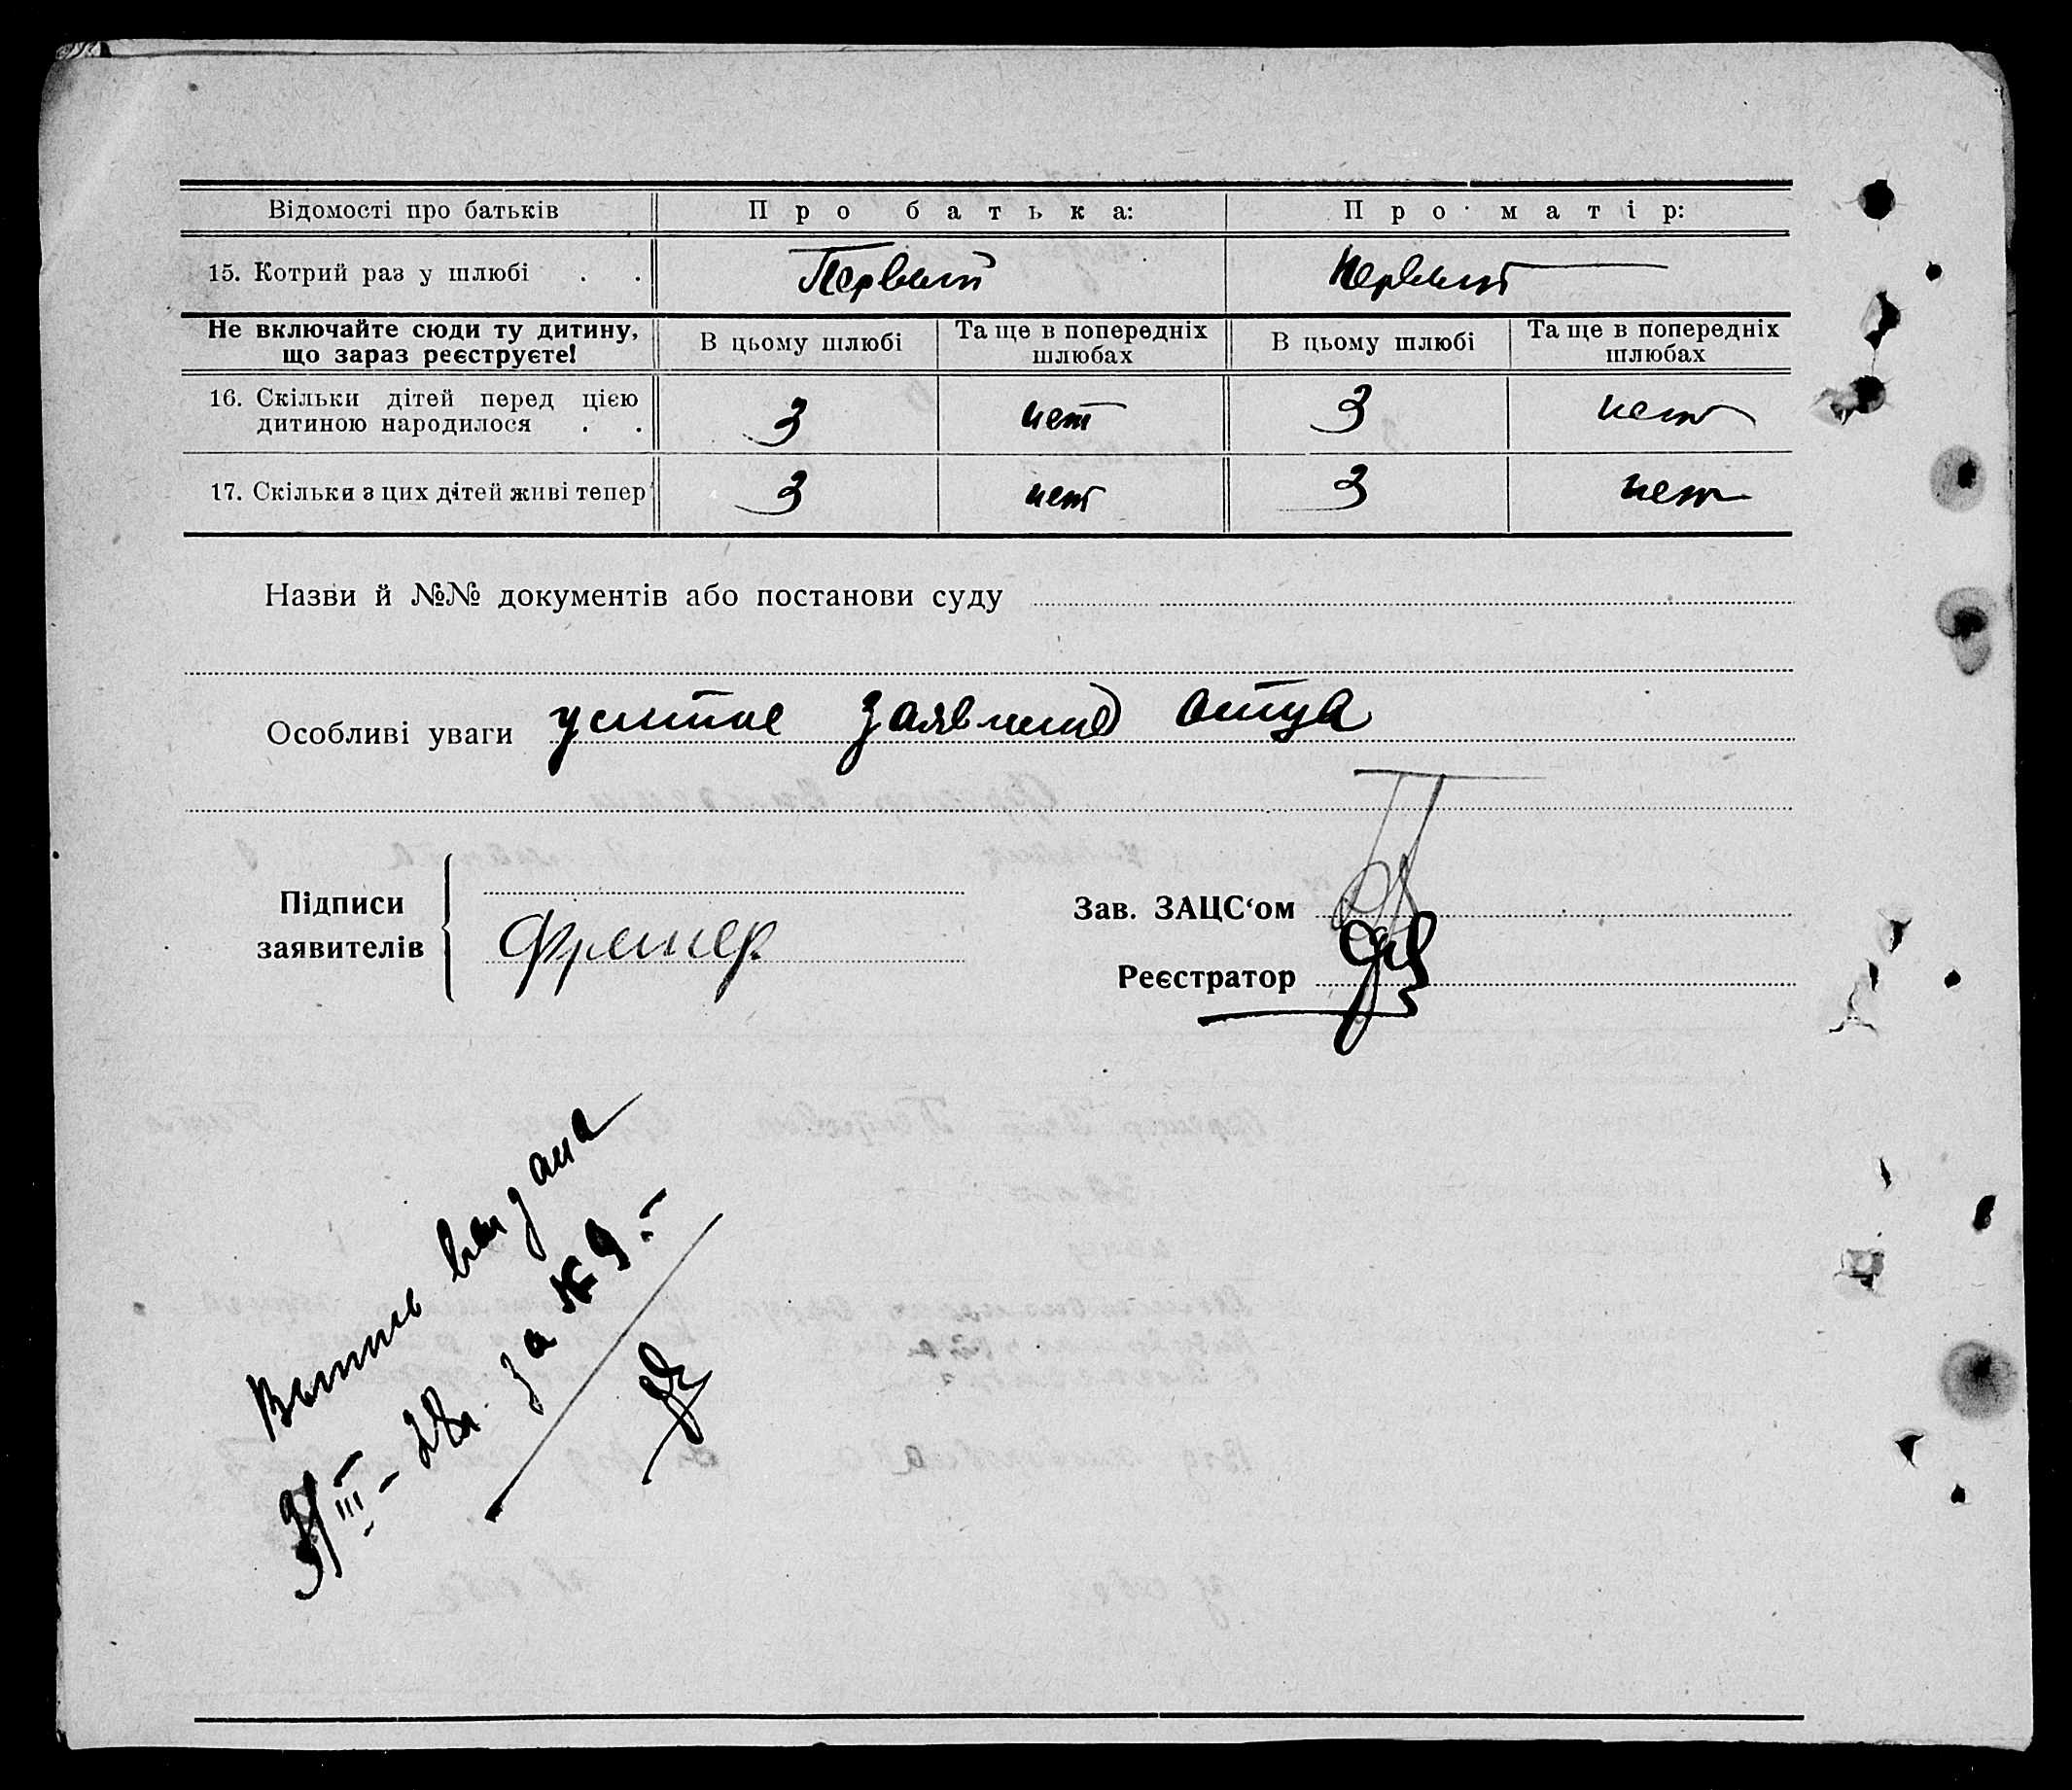 Відомості про батьків Про батька: Про матір:
15. Котрий раз у шлюбі . . Первый Первый
Не включайте сюди ту дитину, що зараз реєструєте! В цьому шлюбі Та ще в попередніх шлюбах В цьому шлюбі Та ще в попередніх шлюбах
16. Скільки дітей перед цією дитиною народилося . . 3 нет 3 нет
17. Скільки з цих дітей живі тепер 3 нет 3 нет
Назви й №№ документів або постанови суду
Особливі уваги устное заявление отца
Підписи заявителів
Зав. ЗАЦС‘ом
Реєстратор
Выпись выдана
3/III – 28г. за № 9